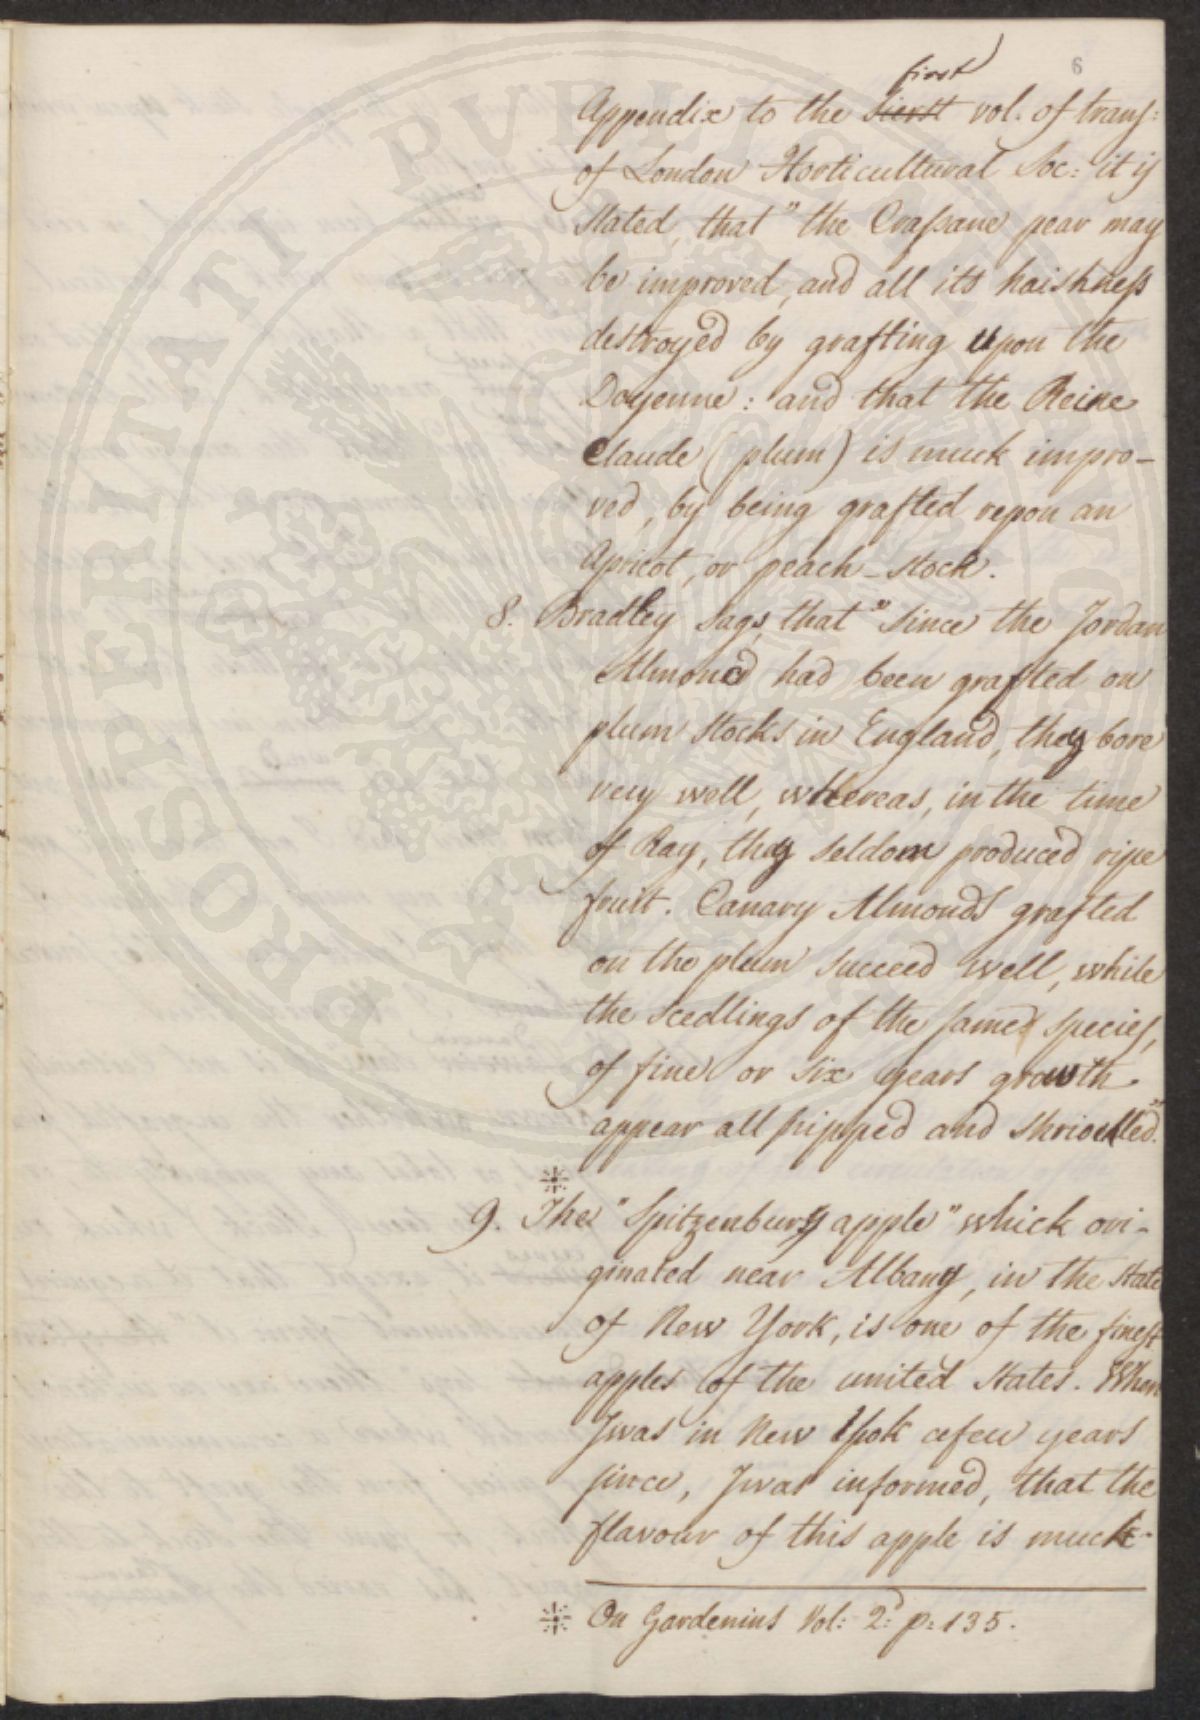 6
first
Appendix to the sierst vol. of trans:
of London Horticultural Soc: it is
stated, that "the Crassane pear may
be improved, and all its haishness
destroyed by grafting upon the
Doyenne: and that the Reine
Claude (plum) is muck impro-
ved, by being grafted repon an
Apricot, or peach-stock.
8. Bradley says, that "since the Jordan
Almond had been grafted on
plum stocks in England, they bore
very well, whereas, in the time
of Ray, they seldom produced ripe
fruit. Canary Almonds grafted
on the plum succeed well, while
the seedlings of the same species,
of fine or six years growth
appear all hipped and shrivelled."
9. The "Spitzenburg apple" which ori-
ginated near Albany, in the State
of New York, is one of the finest
apples of the united States. When
I was in New Yook a few years
since, I was informed, that the
flavour of this apple is muck-
On Gardenius Vol: 2d p: 135.
PROSPERITATI PVBLICAE